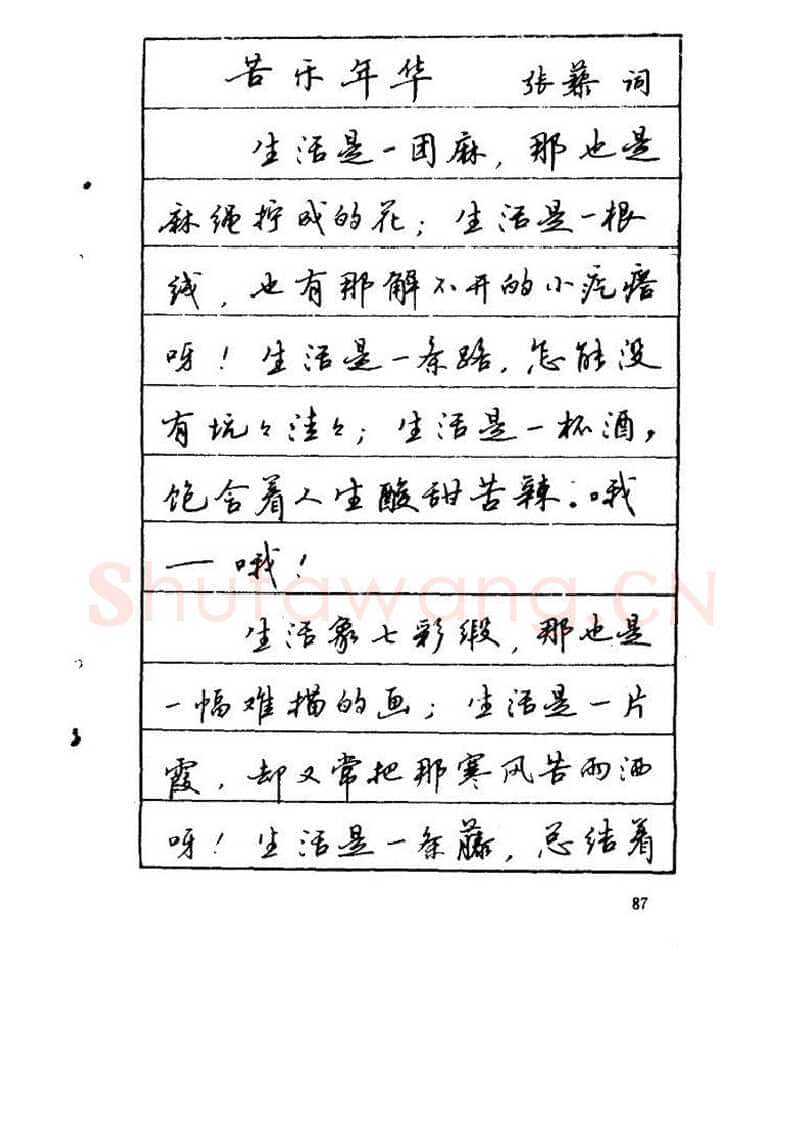 苦乐年华 张藜 词
生活是一团麻，那也是
麻绳拧成的花；生活是一根
线，也有那解不开的小疙瘩
呀！生活是一条路，怎能没
有坑々洼々；生活是一杯酒，
饱含着人生酸甜苦辣。哦
一哦！
Shufawang.CN
生活象七彩缎，那也是
一幅难描的画；生活是一片
霞，却又常把那寒风苦雨洒
呀！生活是一条藤，总结着
87